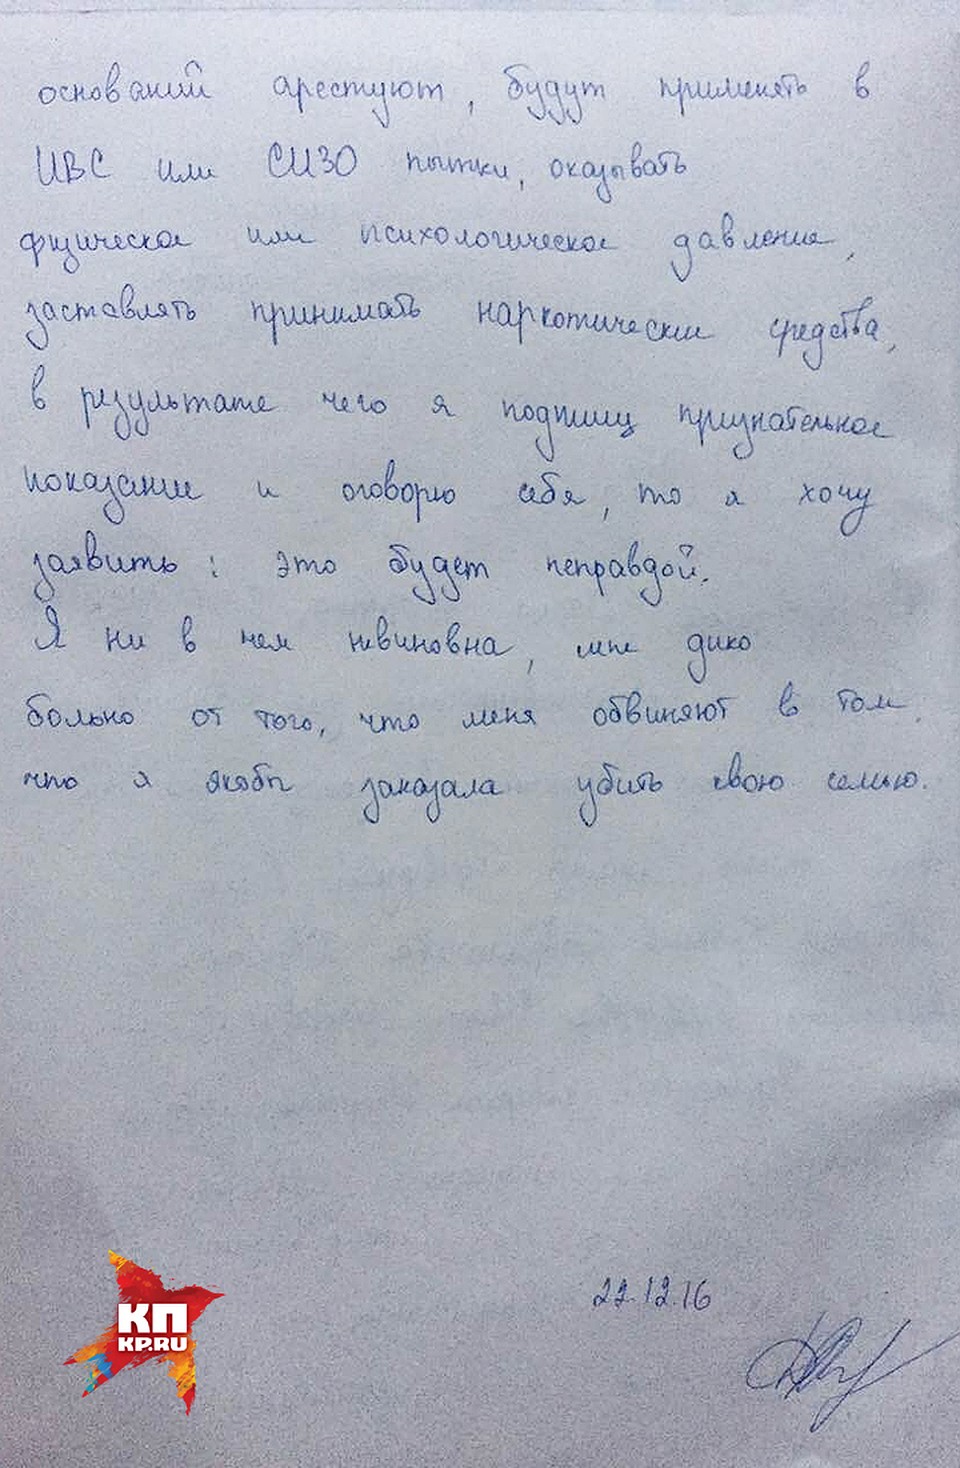 оснований арестуют, будут применять в
ИВС или СИЗО пытки, оказывать
физическое или психологическое давление,
заставлять принимать наркотические средства,
в результате чего я подпишу признательное
показание и оговорю себя, то я хочу
заявить: это будет неправдой.
Я ни в чем невиновна, мне дико
больно от того, что меня обвиняют в том,
что я якобы заказала убить свою семью.
22.12.16
КП
KP.RU